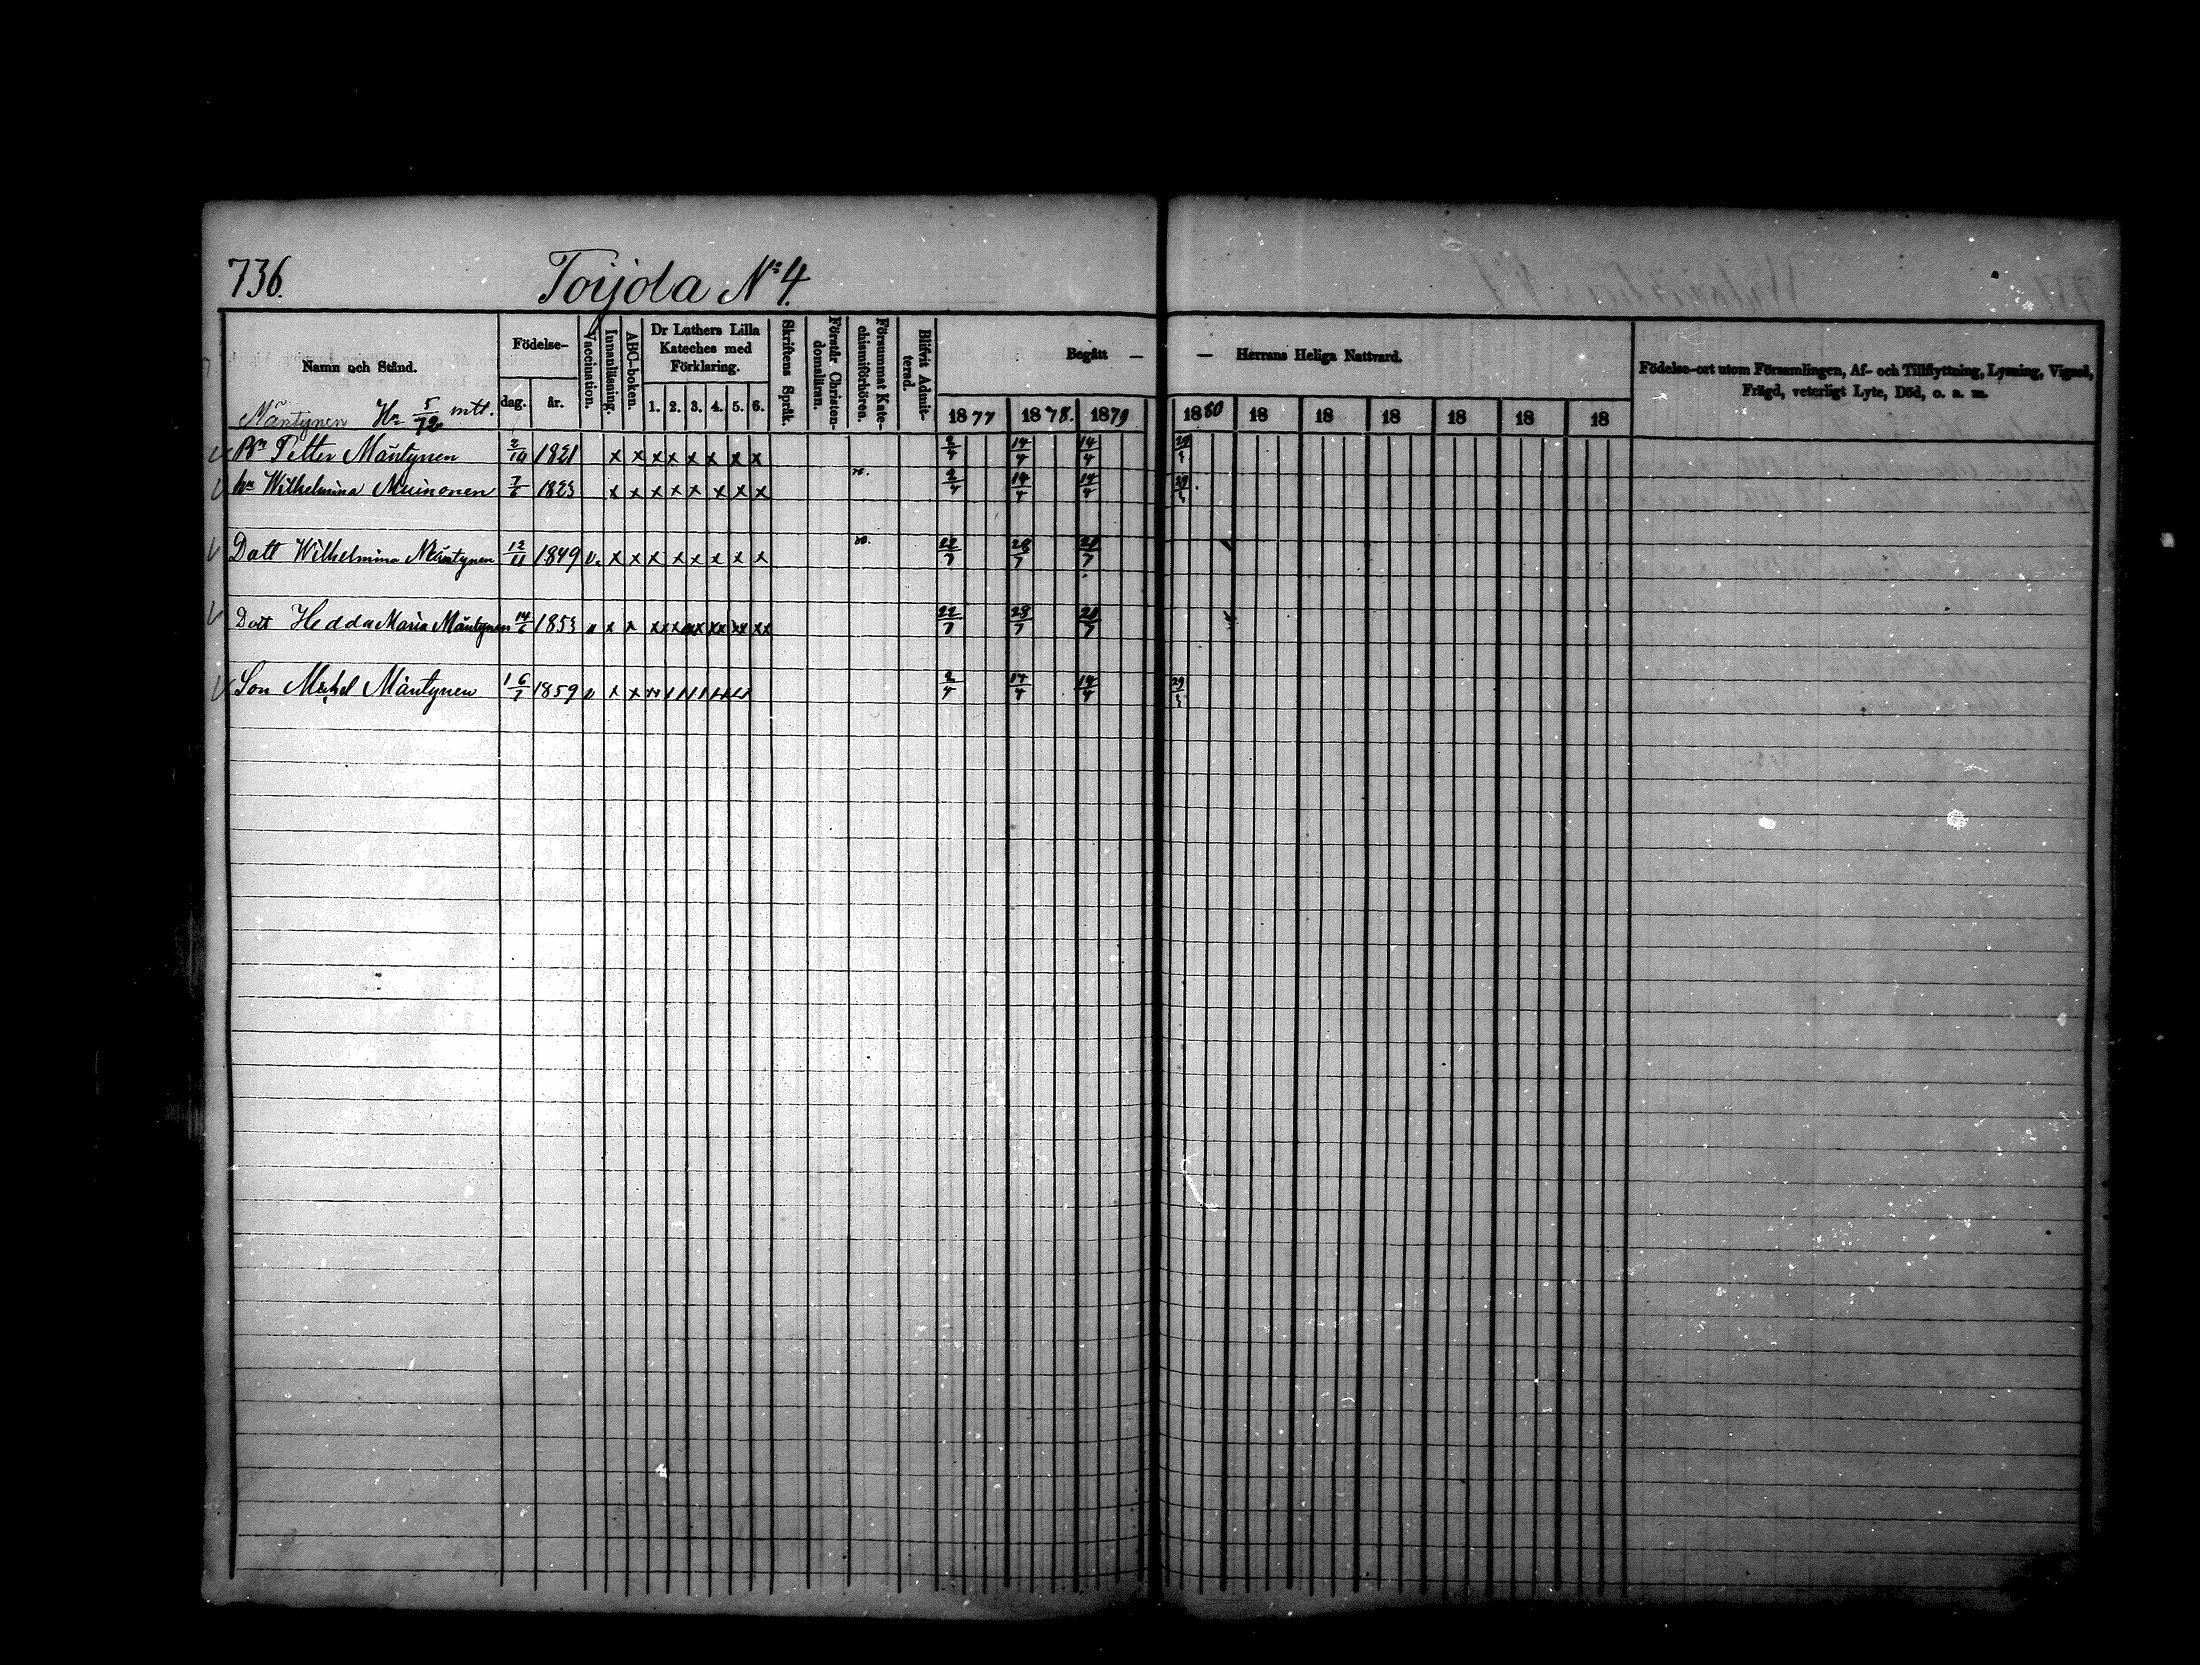 736.
Toijola N:4.
Namn och Stånd.
Födelse-
dag.
år.
Vaccination.
Innanläsning.
ABC-boken.
Dr Luthers Lilla
Kateches med
Förklaring.
1. 2. 3. 4. 5. 6.
Skriftens Språk.
Förstår Christen-
domsläran.
Försummat Kate-
chismiförhören.
Blifvit Admit-
terad.
Begått — — Herrans Heliga Nattvard.
1877 1878. 1879 1880 18 18 18 18 18 18
Födelse-ort utom Församlingen, Af- och Tillflyttning, Lysning, Vigsel,
Frägd, veterligt Lyte, Död, o. s. m.
Mäntynen Hn 5/72 mtl.
Bn Petter Mäntynen 2/10 1821 x x x x x x x x 2/4 14/4 14/4
hu Wilhelmina Muinonen 7/6 1823 x x x x x x x x 2/4 14/4 14/4
Dott Wilhelmina Mäntynen 12/11 1849 v. x x x x x x x x 22/7 28/7 20/7
Dott Hedda Maria Mäntynen 14/6 1853 v x x xx x xx xx xx xx 22/7 28/7 20/7
Son Mickel Mäntynen 16/7 1859 v x x 2/4 14/4 14/4